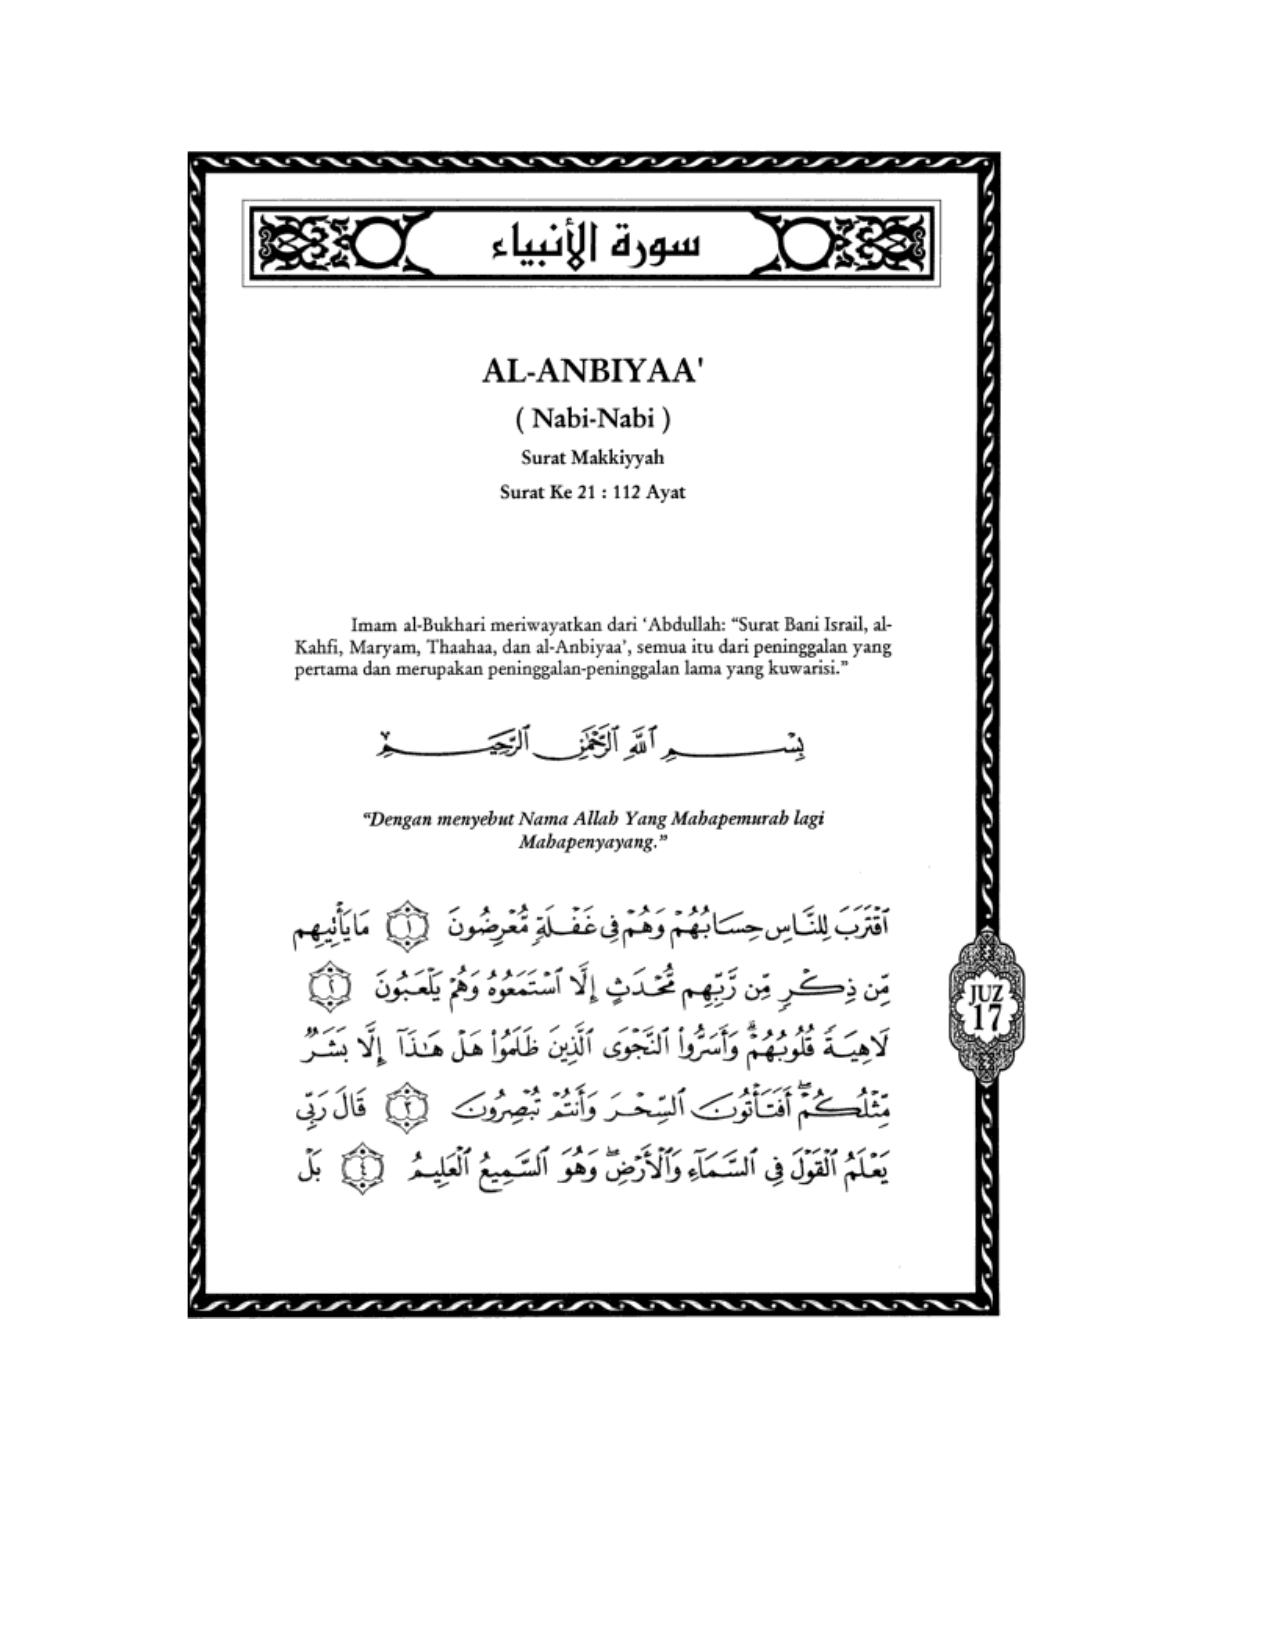 سورة الأنبياء
AL-ANBIYAA'
( Nabi-Nabi )
Surat Makkiyyah
Surat Ke 21 : 112 Ayat
Imam al-Bukhari meriwayatkan dari ‘Abdullah: “Surat Bani Israil, al-
Kahfi, Maryam, Thaahaa, dan al-Anbiyaa’, semua itu dari peninggalan yang
pertama dan merupakan peninggalan-peninggalan lama yang kuwarisi.”
بِسْمِ ٱللَّهِ ٱلرَّحْمَٰنِ ٱلرَّحِيمِ
“Dengan menyebut Nama Allah Yang Mahapemurah lagi
Mahapenyayang.”
ٱقْتَرَبَ لِلنَّاسِ حِسَابُهُمْ وَهُمْ فِى غَفْلَةٍ مُّعْرِضُونَ ١ مَا يَأْتِيهِم
مِّن ذِكْرٍ مِّن رَّبِّهِم مُّحْدَثٍ إِلَّا ٱسْتَمَعُوهُ وَهُمْ يَلْعَبُونَ ٢
لَاهِيَةً قُلُوبُهُمْ ۗ وَأَسَرُّوا۟ ٱلنَّجْوَى ٱلَّذِينَ ظَلَمُوا۟ هَلْ هَٰذَآ إِلَّا بَشَرٌ
مِّثْلُكُمْ ۖ أَفَتَأْتُونَ ٱلسِّحْرَ وَأَنتُمْ تُبْصِرُونَ ٣ قَالَ رَبِّى
يَعْلَمُ ٱلْقَوْلَ فِى ٱلسَّمَآءِ وَٱلْأَرْضِ ۖ وَهُوَ ٱلسَّمِيعُ ٱلْعَلِيمُ ٤ بَلْ
JUZ
17